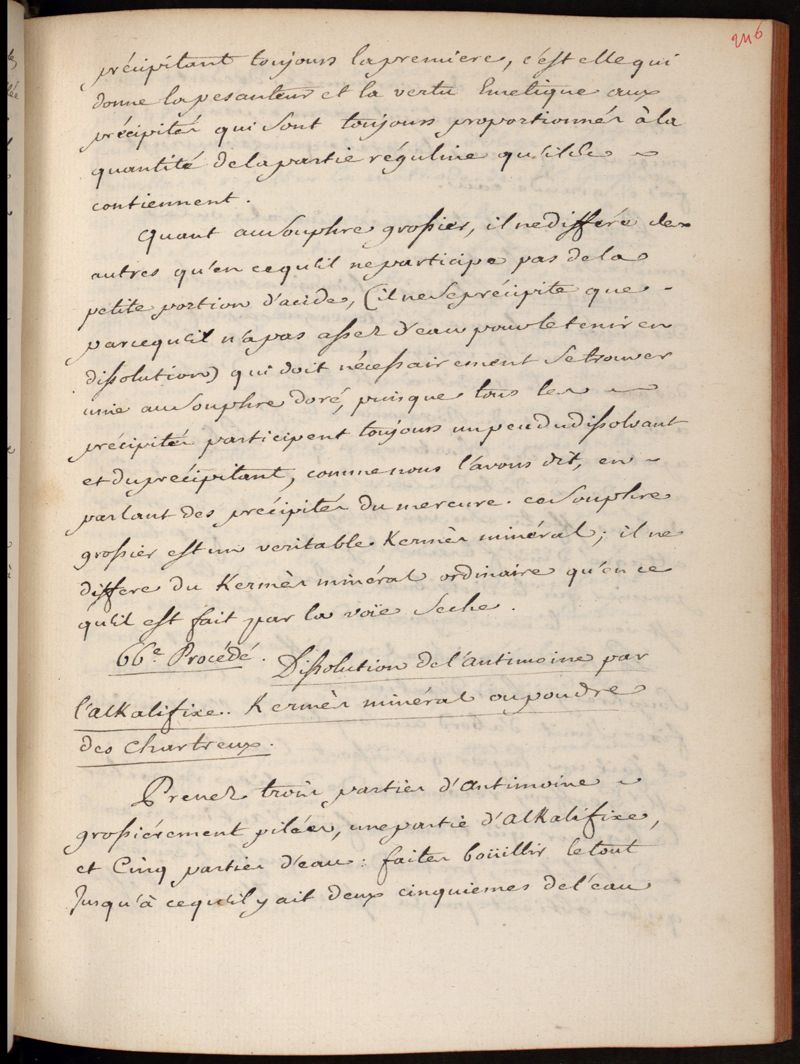 246
précipitant toujours la premiere, c'est elle qui
donne la pesanteur et la vertu Emetique aux
précipités qui sont toujours proportionnés à la
quantité de la partie réguline qu'ils
contiennent.
Quant au Souphre grossier, il ne différe des
autres qu'en ce qu'il ne participe pas de la
petite portion d'acide, (il ne se précipite que
parcequ'il n'a pas assez d'eau pour le tenir en
dissolution) qui doit nécessairement se trouver
unie au Souphre doré, puisque tous les
précipités participent toujours un peu du dissolvant
et du précipitant, comme nous l'avons dit, en
parlant des précipités du mercure. ce Souphre
grossier est un veritable Kermès minéral; il ne
differe du Kermès minéral ordinaire qu'en ce
qu'il est fait par la voïe Seche.
66e. Procédé. Dissolution de l'antimoine par
l'alKali fixe. Kermès minéral ou poudre
des Chartreux.
Prenez trois parties d'antimoine
grossiérement pilées, une partie d'alKali fixe,
et Cinq parties d'eau: faites boüillir le tout
Jusqu'à ce qu'il y ait deux cinquiemes de l'eau